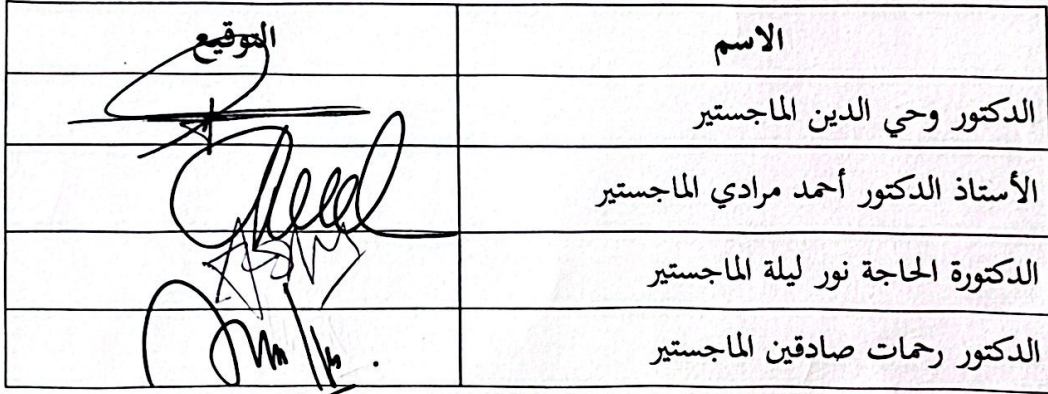 الاسم
التوقيع
الدكتور وحي الدين الماجستير
الأستاذ الدكتور أحمد مرادي الماجستير
الدكتورة الحاجة نور ليلة الماجستير
الدكتور رحمات صادقين الماجستير